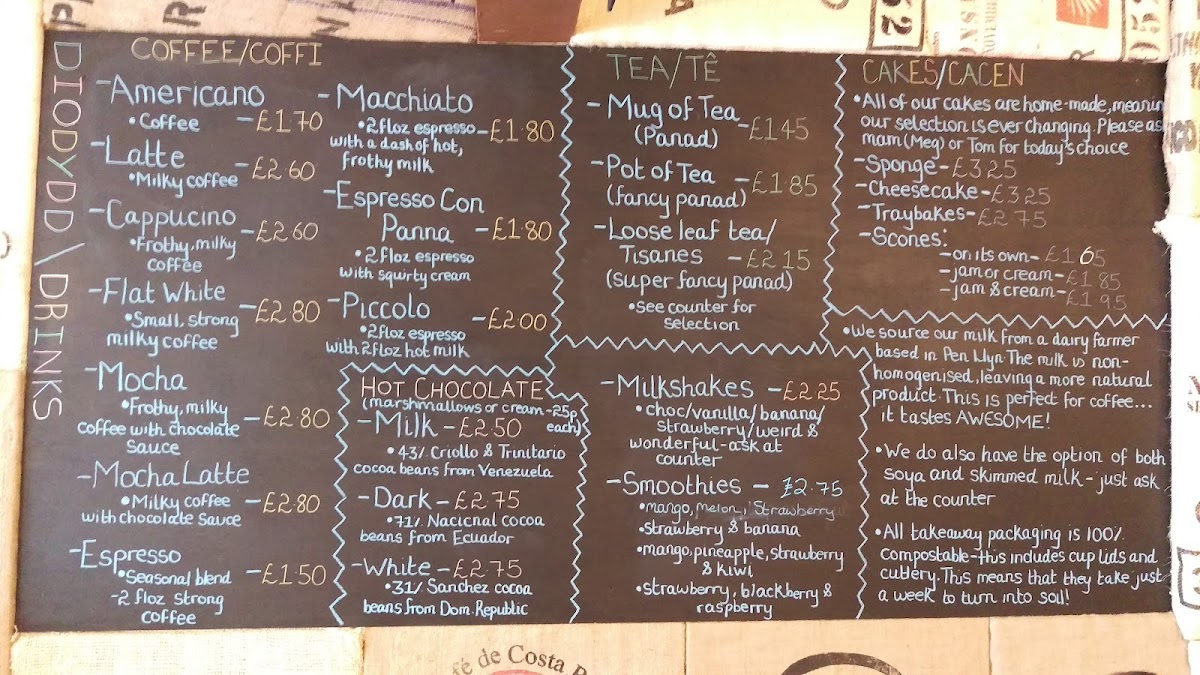 DIODYDD \ DRINKS
COFFEE/COFFI
-Americano
•Coffee -£1.70
-Latte
•Milky coffee -£2.60
-Cappucino
•Frothy, milky
coffee -£2.60
-Flat White
•Small, strong
milky coffee -£2.80
-Mocha
•Frothy, milky
coffee with chocolate
Sauce -£2.80
-Mocha Latte
•Milky coffee
with chocolate Sauce -£2.80
-Espresso
•Seasonal blend
-2 floz strong
coffee -£1.50
-Macchiato
•2floz espresso
with a dash of hot,
frothy milk -£1.80
-Espresso Con
Panna -£1.80
•2floz espresso
with squirty cream
-Piccolo
•2floz espresso
with 2floz hot milk -£2.00
HOT CHOCOLATE
(marshmallows or cream-25p
each)
-Milk -£2.50
•43% Criollo & Trinitario
cocoa beans from Venezuela
-Dark -£2.75
•71% Nacional cocoa
beans from Ecuador
-White -£2.75
•31% Sanchez cocoa
beans from Dom. Republic
TEA/TÊ
-Mug of Tea
(Panad) -£1.45
-Pot of Tea
(fancy panad) -£1.85
-Loose leaf tea/
Tisanes -£2.15
(super fancy panad)
•See counter for
selection
-Milkshakes -£2.25
•choc/vanilla/banana/
strawberry/weird &
wonderful-ask at
counter
-Smoothies - £2.75
•mango, melon, strawberry
•strawberry & banana
•mango, pineapple, strawberry
& kiwi
•strawberry, blackberry &
raspberry
CAKES/CACEN
•All of our cakes are home-made, meaning
our selection is ever changing. Please ask
mam (Meg) or Tom for today's choice
-Sponge-£3.25
-Cheesecake-£3.25
-Traybakes-£2.75
-Scones:
-on its own-£1.65
-jam or cream-£1.85
-jam & cream-£1.95
•We source our milk from a dairy farmer
based in Pen Llyn. The milk is non-
homogenised, leaving a more natural
product. This is perfect for coffee...
it tastes AWESOME!
•We do also have the option of both
Soya and skimmed milk - just ask
at the counter
•All takeaway packaging is 100%
compostable-this includes cup lids and
cutlery. This means that they take just
a week to turn into soil!
fé de Costa